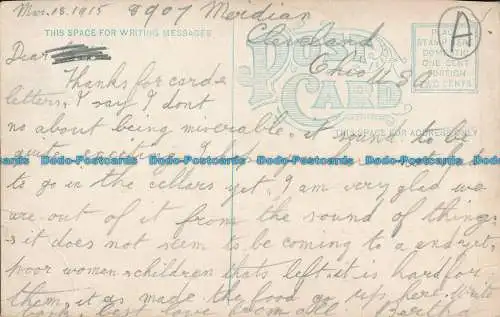 Mar. 18. 1915 8907 Meridian
THIS SPACE FOR WRITING MESSAGES
Cleveland
Ohio USA
A
POST CARD
PLACE
STAMP HERE
DOMESTIC
ONE CENT
FOREIGN
TWO CENTS
Dear
Thanks for cards
letters, I say I dont
THIS SPACE FOR ADDRESS ONLY
no about being miserable, it to be
quite
Dodo-Postcards.com
to go in the cellars yet, I am very glad we
are out of it from the sound of things
it does not seem to be coming to a end yet,
poor women & children thats left it is hard for
them, it as made the food go up here. Write
back, best love from all. Bertha